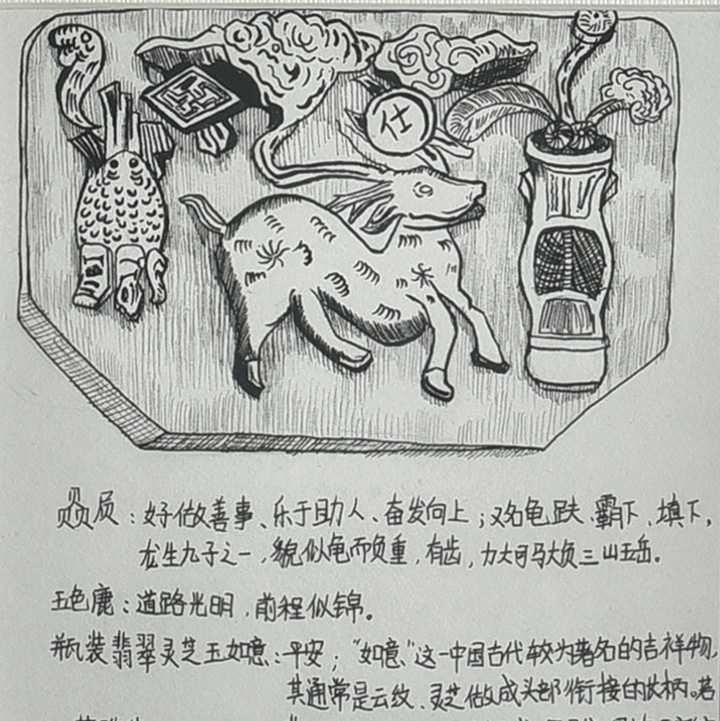 仕
赑屃：好做善事、乐于助人、奋发向上；又名龟趺、霸下、填下，
龙生九子之一，貌似龟而负重，有齿，力大可驮负三山五岳。
五色鹿：道路光明，前程似锦。
瓶装翡翠灵芝玉如意：平安；“如意”这一中国古代较为著名的吉祥物，
其通常是云纹、灵芝做成头部衔接的长柄。若